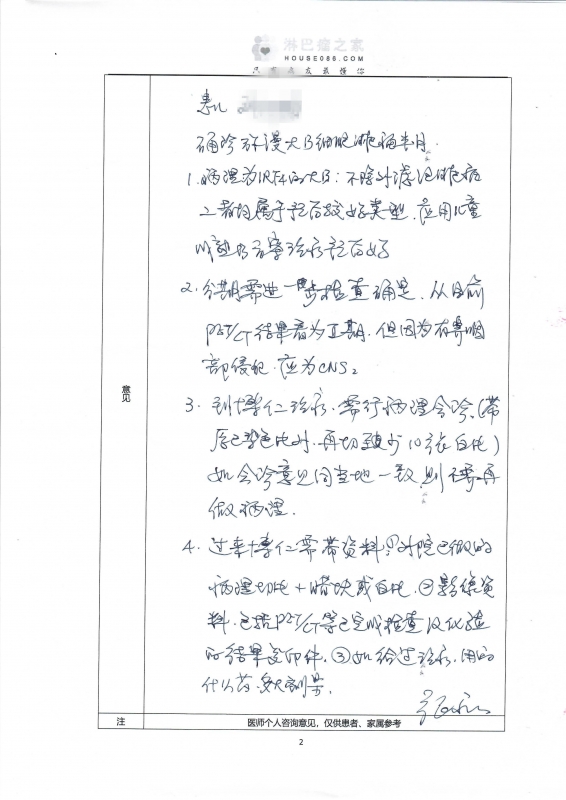 淋巴瘤之家
HOUSE086.COM
只有病友最懂你
患儿
确诊弥漫大B细胞淋巴瘤半月.
1. 病理为IRF4的大B; 不除外滤泡淋巴瘤
二者均属于预后较好类型, 应用儿童
成熟B方案治疗预后好
2. 分期需进一步检查确定. 从目前
PET/CT结果看为Ⅱ期. 但因为有鼻咽
部侵犯, 应为CNS2
3. 到博仁治疗, 需行病理会诊, (带
原已染色片外, 再切至少10张白片)
如会诊意见同当地一致, 则不需再
做病理.
4. 过来博仁需带资料, ①外院已做的
病理切片+蜡块或白片. ②影像资
料, 包括PET/CT等已完成检查及化验
的结果复印件. ③如给过治疗, 用的
什么药, 多大剂量.
意见
注
医师个人咨询意见，仅供患者、家属参考
2